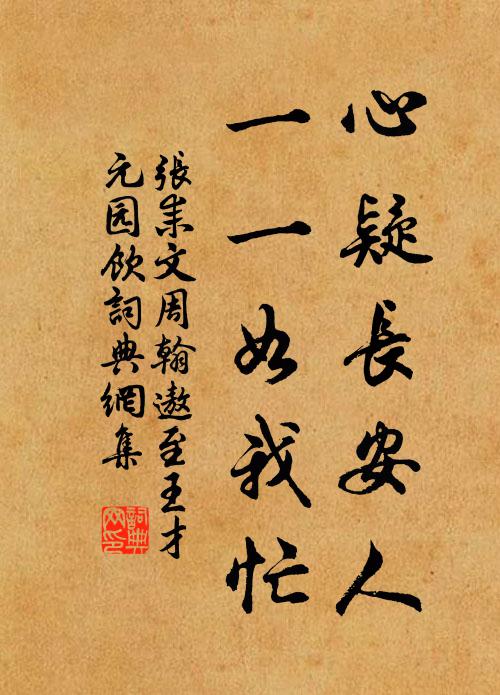 心疑長安人
一一如我忙
張耒文周翰遨至王才
元园飲詞典網集
詞典
网印